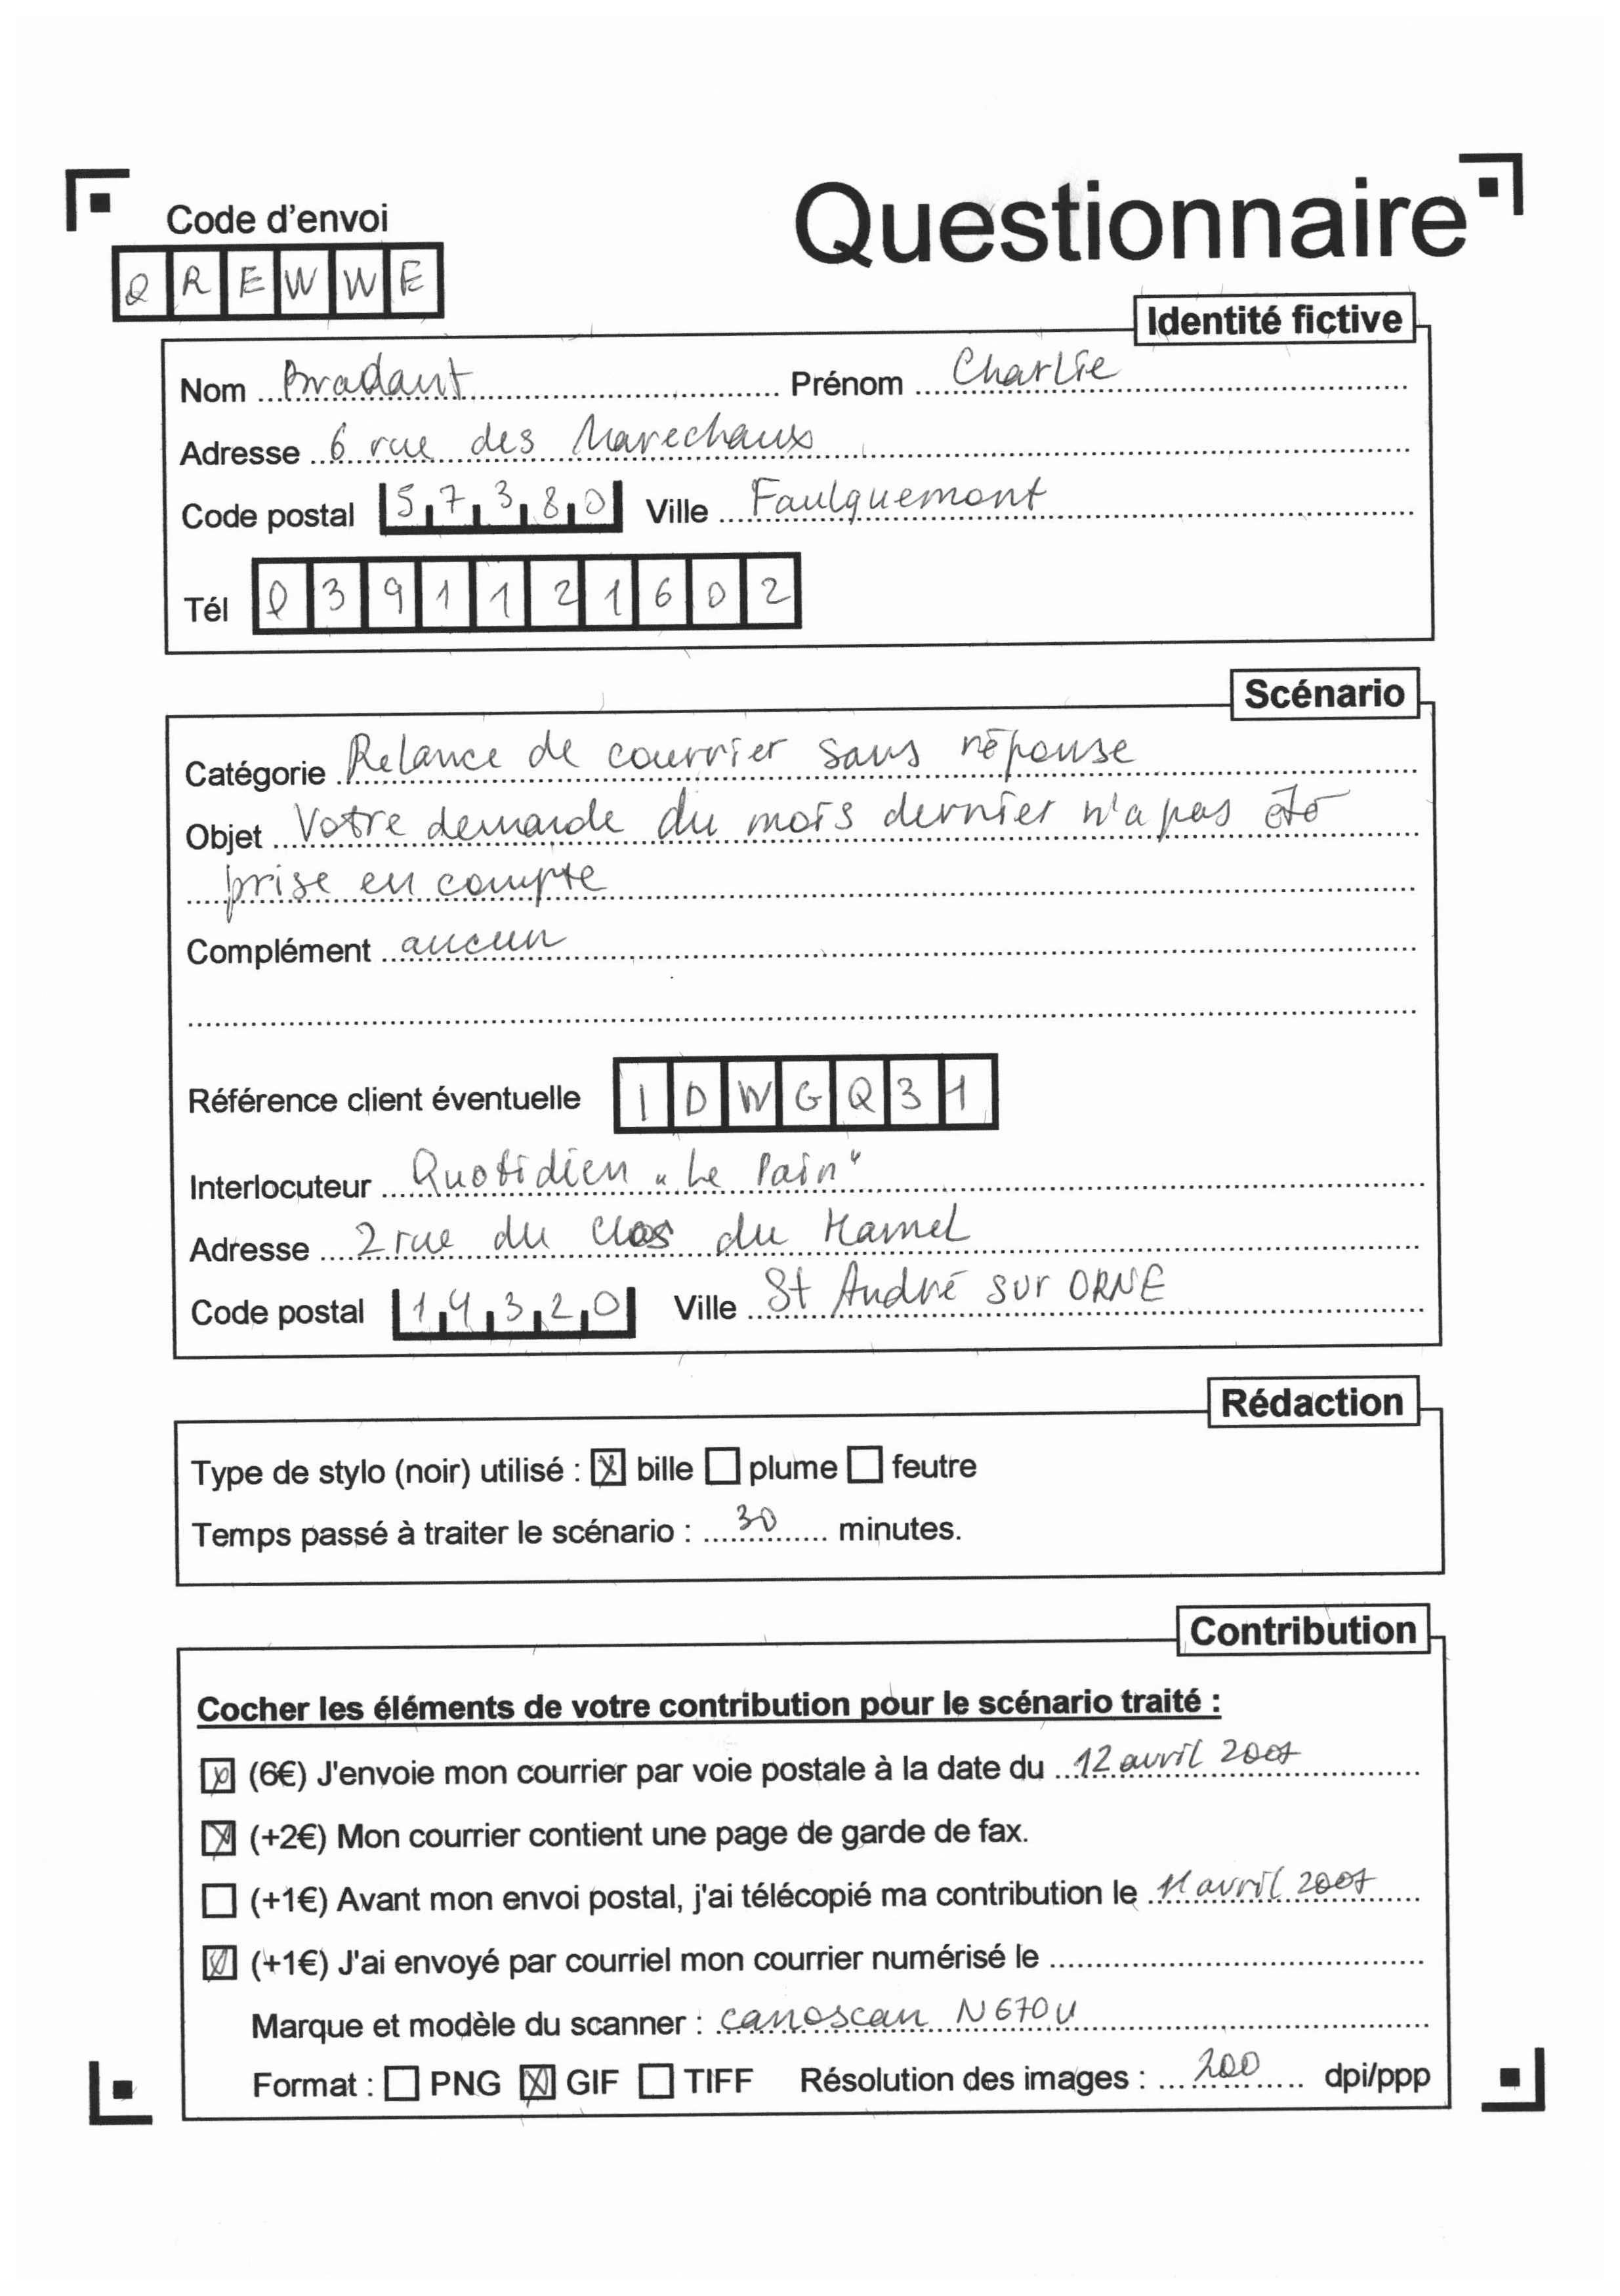 Questionnaire
Code d'envoi
QREWWE
Identité fictive
Nom Bradant Prénom Charlie
Adresse 6 rue des Marechaux
Code postal 57380 Ville Faulquemont
Tél 0391121602
Scénario
Catégorie Relance de courrier sans réponse
Objet Votre demande du mois dernier n'a pas été
prise en compte
Complément aucun
Référence client éventuelle IDWGQ31
Interlocuteur Quotidien "Le Pain"
Adresse 2 rue du Clos du Hamel
Code postal 14320 Ville St André sur ORNE
Rédaction
Type de stylo (noir) utilisé : ☒ bille ☐ plume ☐ feutre
Temps passé à traiter le scénario : 30 minutes.
Contribution
Cocher les éléments de votre contribution pour le scénario traité :
☒ (6€) J'envoie mon courrier par voie postale à la date du 12 avril 2007
☒ (+2€) Mon courrier contient une page de garde de fax.
☐ (+1€) Avant mon envoi postal, j'ai télécopié ma contribution le 11 avril 2007
☒ (+1€) J'ai envoyé par courriel mon courrier numérisé le
Marque et modèle du scanner : canoscan N670U
Format : ☐ PNG ☒ GIF ☐ TIFF Résolution des images : 200 dpi/ppp